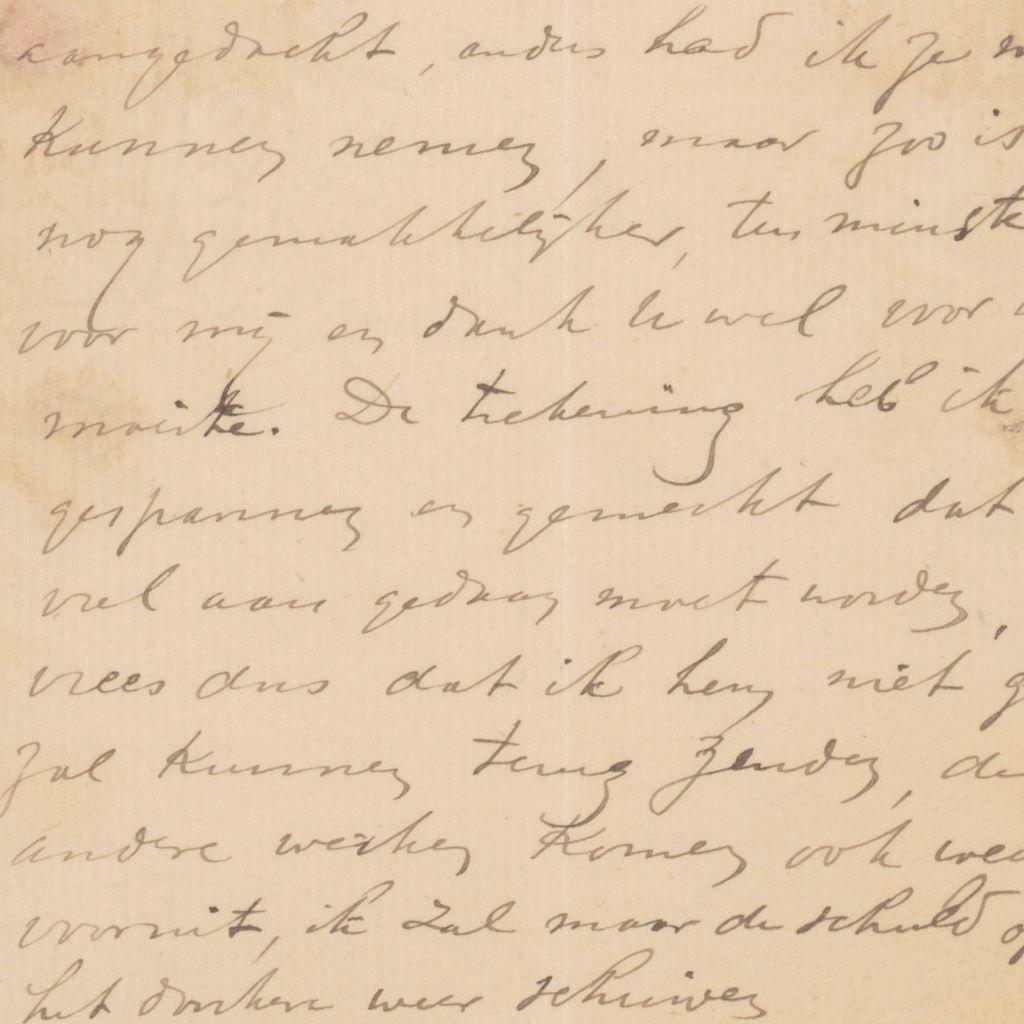 aangedacht, anders had ik je m
kunnen nemen, maar zoo is
nog gemakkelijker, ten minste
voor mij en dank U wel voor
moeite. De teekening heb ik
gespannen en gemerkt dat
veel aan gedaan moet worden,
vrees dus dat ik hem niet g
zal kunnen terug zenden, de
andere werken komen ook wee
vooruit, ik zal maar de schuld op
het donkere weer schuiven